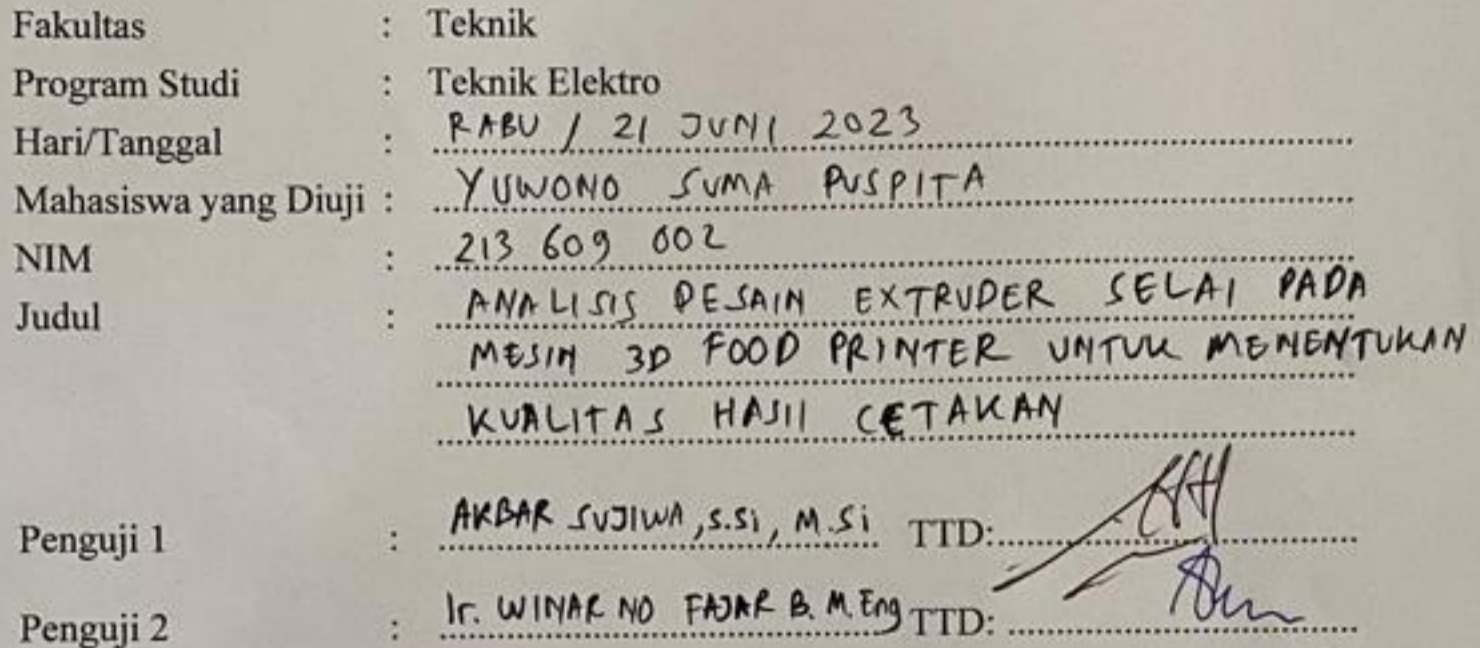 Fakultas : Teknik
Program Studi : Teknik Elektro
Hari/Tanggal : RABU / 21 JUNI 2023
Mahasiswa yang Diuji : YUWONO SUMA PUSPITA
NIM : 213 609 002
Judul : ANALISIS DESAIN EXTRUDER SELAI PADA
MESIN 3D FOOD PRINTER UNTUK MENENTUKAN
KUALITAS HASIl CETAKAN
Penguji 1 : AKBAR SUJIWA, S.Si, M.Si TTD:
Penguji 2 : Ir. WINARNO FAJAR B. M.Eng TTD: